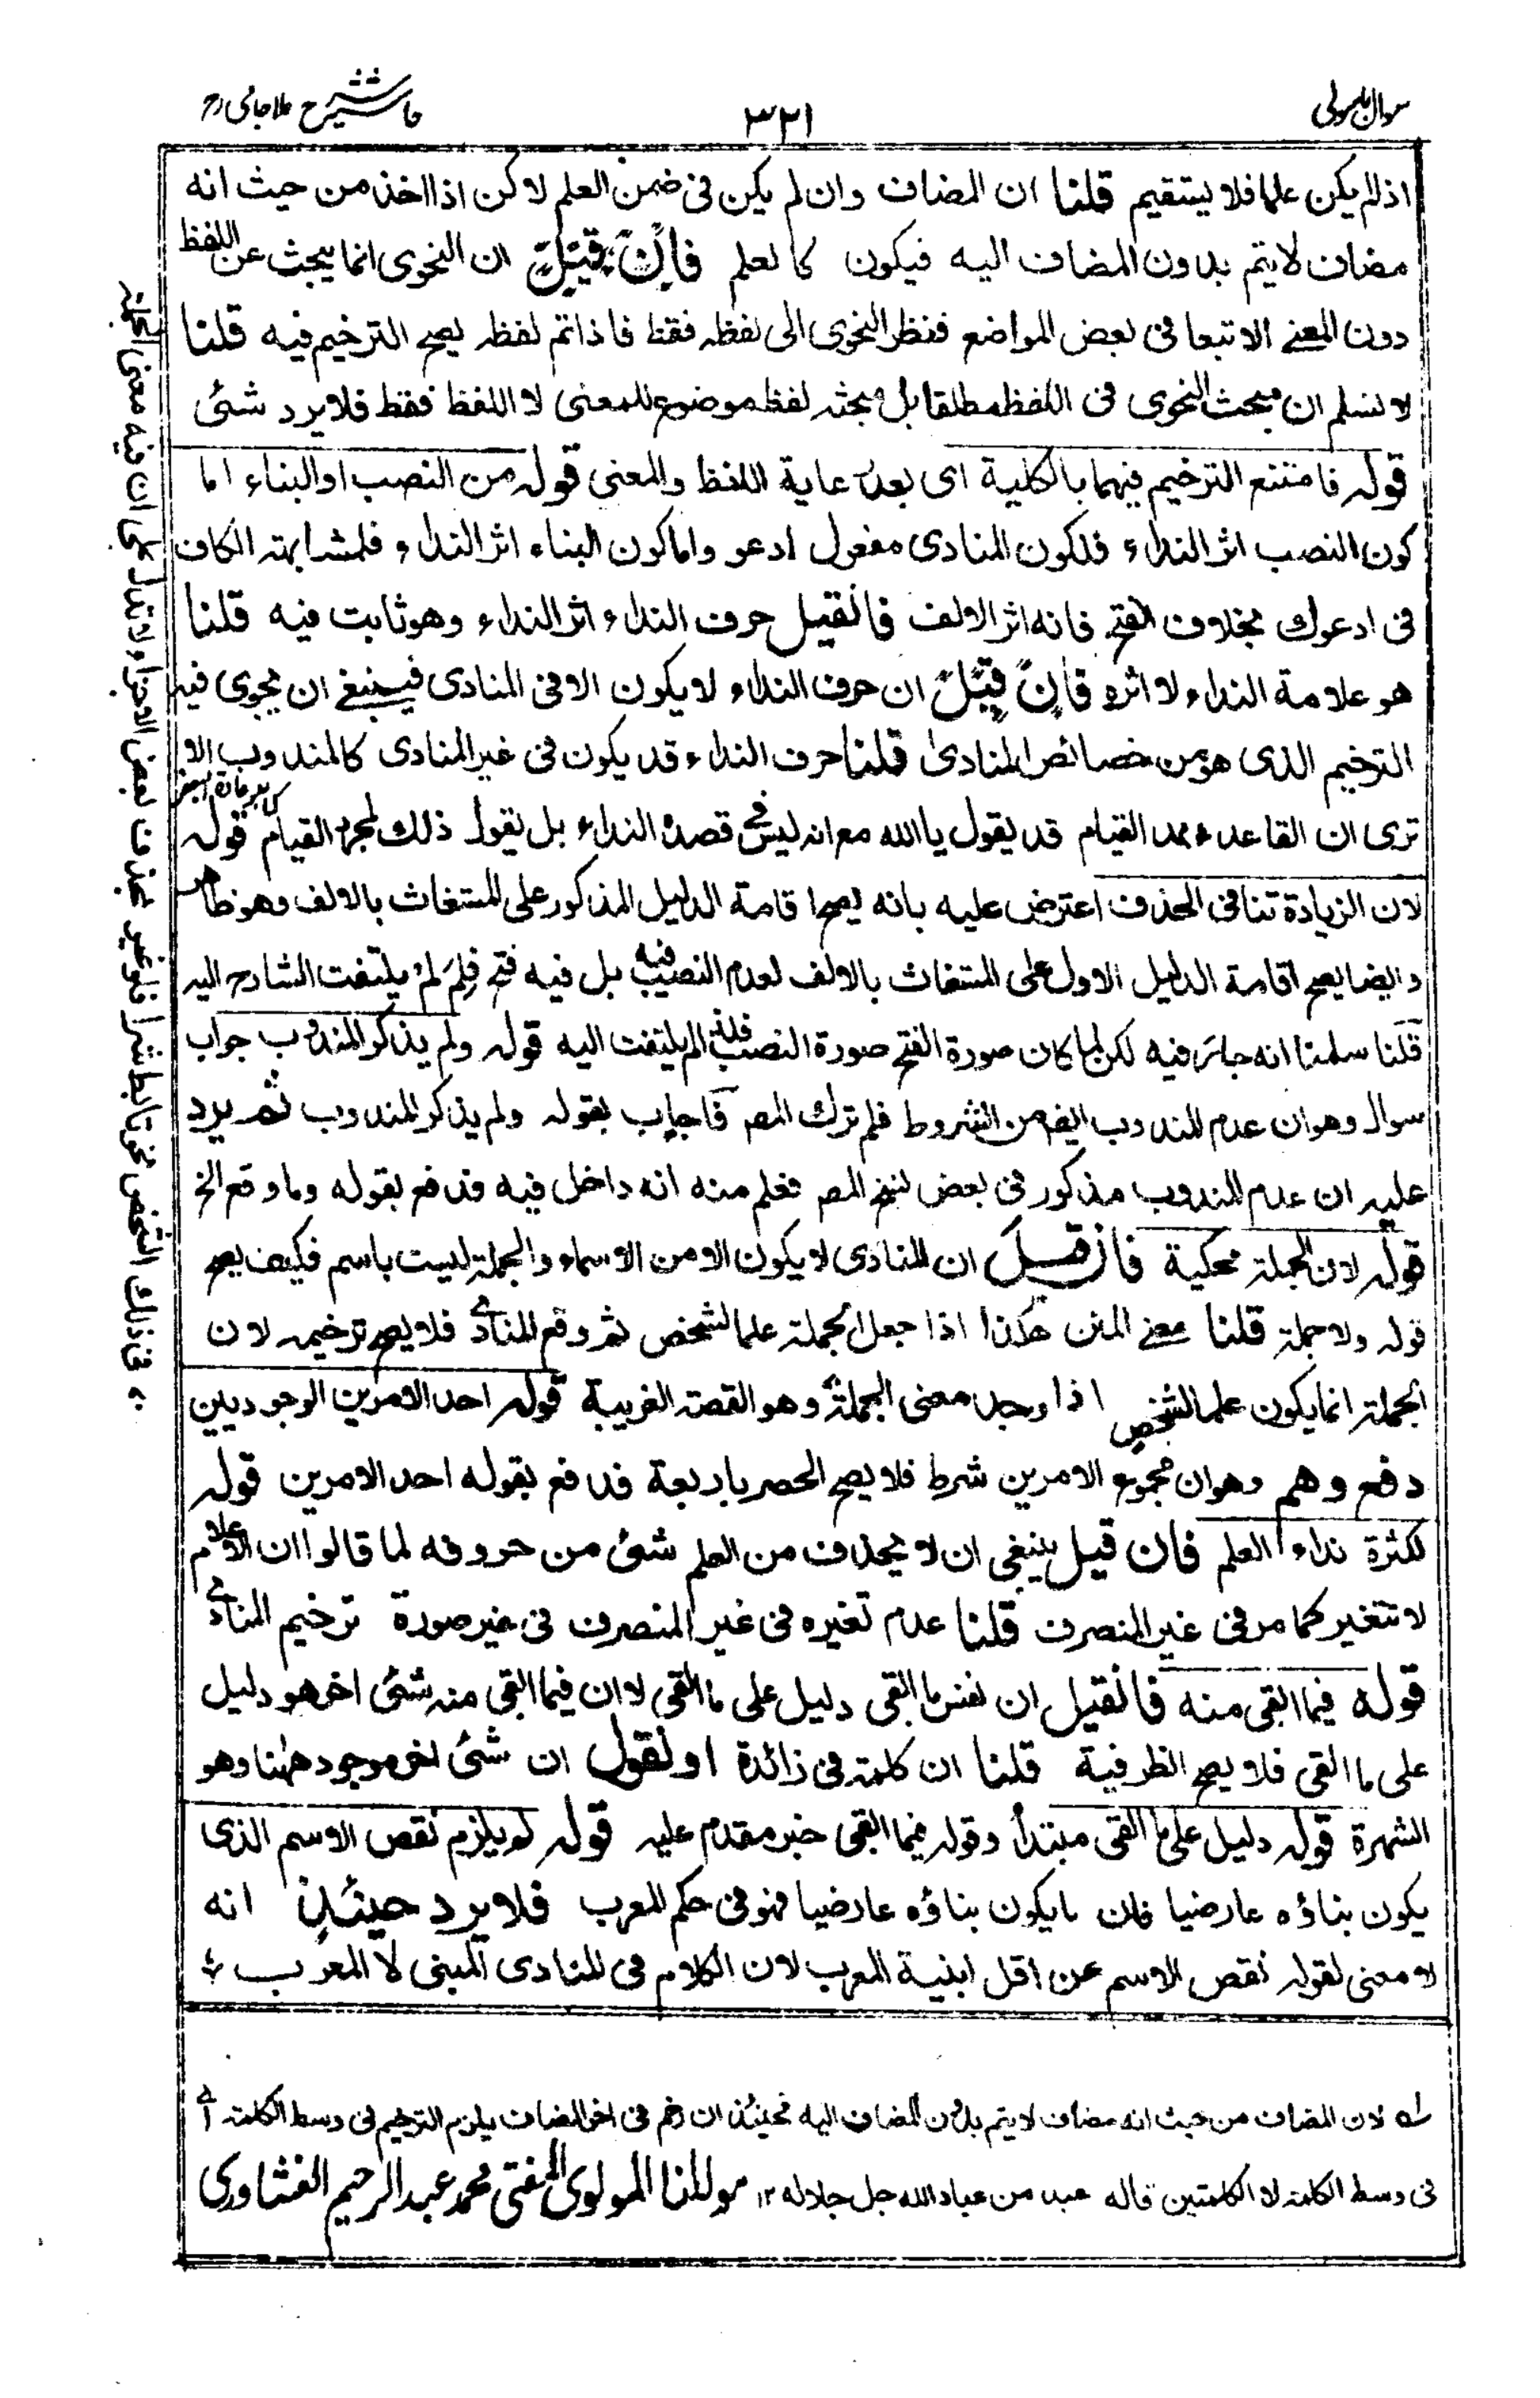 سوال باسولی
٣٢١
حاشیہ شرح ملا جامی رح
اذا لم يكن علما فلا يستقيم قلنا ان المضاف وان لم يكن فى ضمن العلم لاكن اذا اخذ من حيث انه
مضاف لا يتم بدون المضاف اليه فيكون كالعلم فان قيل ان النحوى انما يبحث عن اللفظ
دون المعنے الا تبعا فى بعض المواضع فنظر النحوى الى لفظه فقط فاذا تم لفظه يصح الترخيم فيه قلنا
لا نسلم ان مبحث النحوى فى اللفظ مطلقا بل مبحثه لفظ موضوع للمعنى لا اللفظ فقط فلا يرد شئ
قوله فامتنع الترخيم فيهما بالكلية اى بعد رعاية اللفظ والمعنى قوله من النصب او البناء اما
كون النصب اثر النداء فلكون المنادى مفعول ادعو واما كون البناء اثر النداء فلمشابهته الكاف
فى ادعوك بخلاف الفتح فانه اثر الالف فان قيل حرف النداء اثر النداء وهو ثابت فيه قلنا
هو علامة النداء لا اثره فان قيل ان حرف النداء لا يكون الا فى المنادى فينبغى ان يجوى فيه
الترخيم الذى هو من خصائص المنادى قلنا حرف النداء قد يكون فى غير المنادى كالمندوب الا
ترى ان القاعد عند القيام قد يقول يا الله مع انه ليس فى قصده النداء بل يقول ذلك لمجرد القيام قوله
لان الزيادة تنافى الحذف اعترض عليه بانه يصح اقامة الدليل المذكور على المستغاث بالالف وهو ظاهر
وايضا يصح اقامة الدليل الاول على المستغاث بالالف لعدم النصب فيه بل فيه فتح فلم لم يلتفت الشارح اليه
قلنا سلمنا انه جائز فيه لكن لما كان صورة الفتح صورة النصب فلذا لم يلتفت اليه قوله ولم يذكر المندوب جواب
سوال وهو ان عدم المندوب ايضا من الشروط فلم ترك المصـ فاجاب بقوله ولم يذكر المندوب ثم يرد
عليه ان عدم المندوب مذكور فى بعض نسخ المصـ فعلم منه انه داخل فيه فدفع بقوله وما وقع الخ
قوله لان الجملة محكية فان قيل ان المنادى لا يكون الا من الاسماء والجملة ليست باسم فكيف يصح
قوله ولا جملة قلنا معنے المتن هكذا اذا جعل الجملة علما لشخص ثم وقع المنادى فلا يصح ترخيمه لان
الجملة انما يكون علما لشخص اذا وجد معنى الجملة وهو القصة الغريبة قوله احد الامرين الوجوديين
دفع وهم وهو ان مجموع الامرين شرط فلا يصح الحصر باربعة فدفع بقوله احد الامرين قوله
لكثرة نداء العلم فان قيل ينبغى ان لا يحذف من العلم شئ من حروفه لما قالوا ان الاعلام
لا تتغير كما مر فى غير المنصرف قلنا عدم تغيره فى غير المنصرف فى غير صورة ترخيم المنادى
قوله فيما ابقى منه فان قيل ان نفس ما ابقى دليل على ما القى لا ان فيما ابقى منه شئ اخر هو دليل
على ما القى فلا يصح الظرفية قلنا ان كلمة فى زائدة او نقول ان شئ اخر موجود ههنا وهو
الشهرة قوله دليل على ما القى مبتدأ وقوله فيما ابقى خبر مقدم عليه قوله لو يلزم نقص الاسم الذى
يكون بناؤه عارضيا فان ما يكون بناؤه عارضيا فهو فى حكم المعرب فلا يرد حينئذ انه
لا معنى لقوله نقص الاسم عن اقل ابنية المعرب لان الكلام فى المنادى المبنى لا المعرب
لان المضاف من حيث انه مضاف لا يتم بدون المضاف اليه فحينئذ ان رخم فى اخر المضاف يلزم الترخيم فى وسط الكلمة اى
فى وسط الكلمة لا الكلمتين قاله عبد من عباد الله جل جلاله ١٢ مولانا المولوى المفتى محمد عبد الرحيم الفشاورى